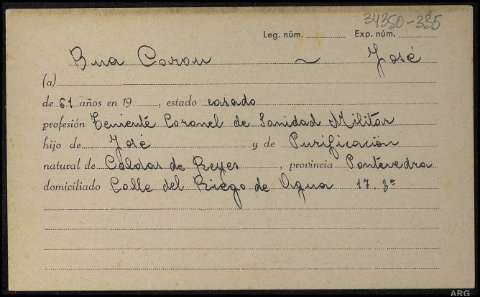 34350-335
Leg. núm. Exp. núm.
Bua Corou ~ José
(a)
de 61 años en 19 , estado casado
profesión Teniente Coronel de Sanidad Militar
hijo de José y de Purificación
natural de Caldas de Reyes , provincia Pontevedra
domiciliado Calle del Riego de Agua 17. 3º
ARG